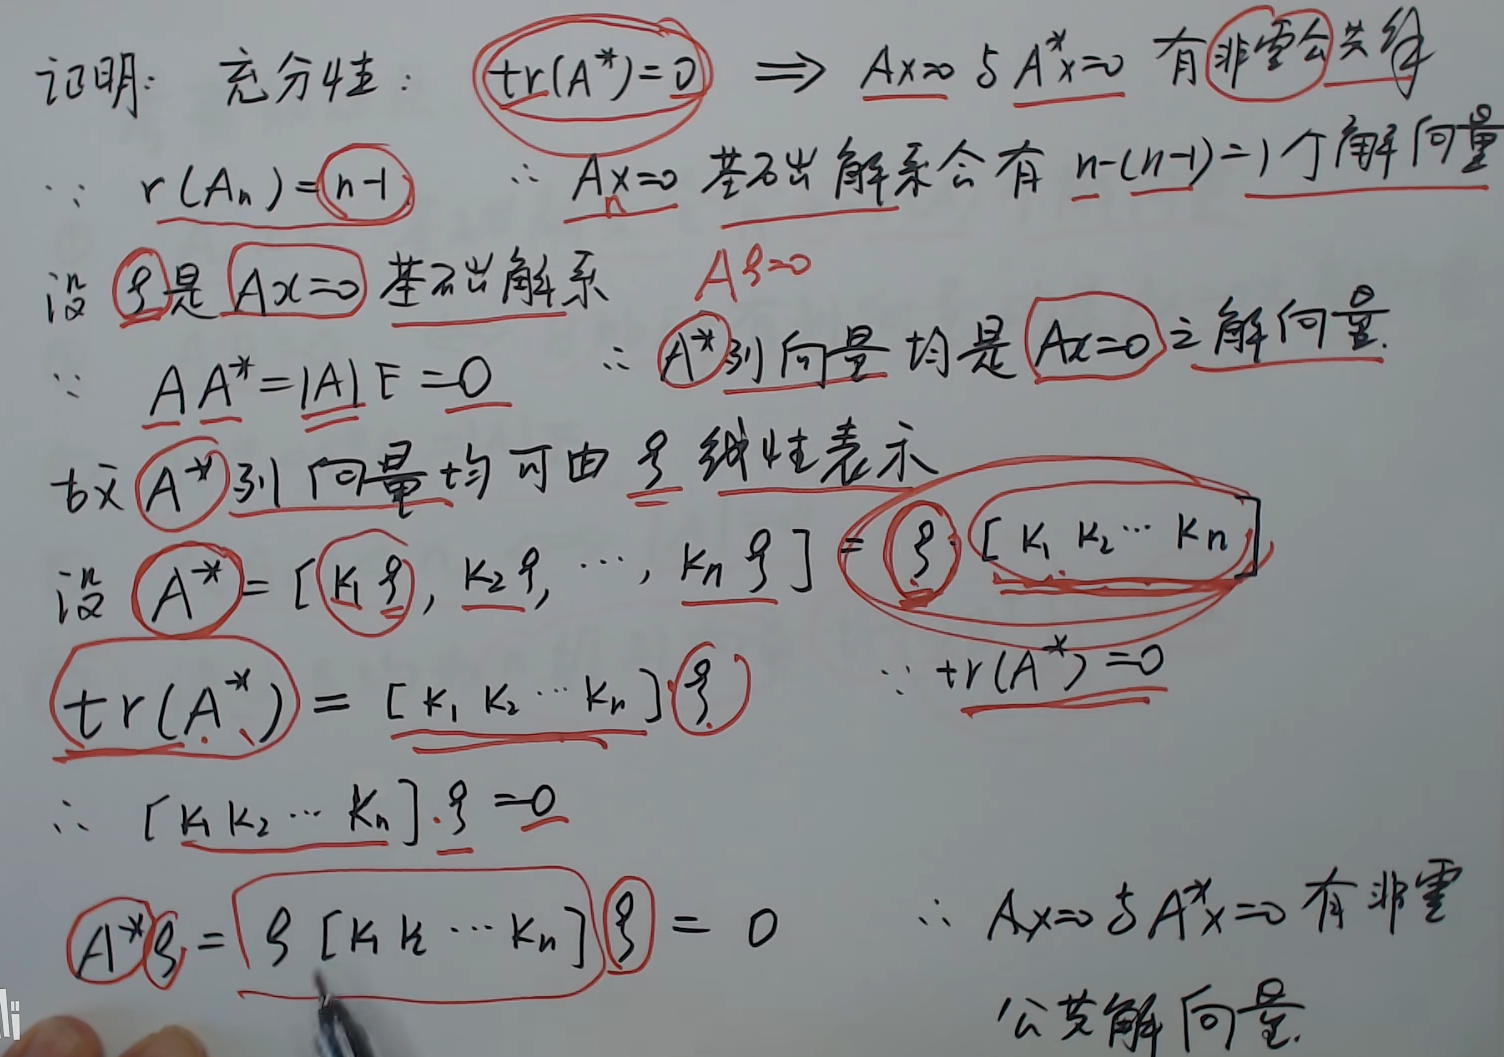 证明: 充分性: tr(A*)=0 ⟹ Ax=0与A*x=0 有非零公共解
∵ r(An)=n-1 ∴ Ax=0 基础解系含有 n-(n-1)=1个解向量
n
设 ξ是 Ax=0 基础解系 Aξ=0
∵ AA*=|A|E=0 ∴ A*列向量均是 Ax=0 之解向量.
故 A*列向量均可由 ξ 线性表示
设 A*=[k₁ξ, k₂ξ, ⋯, knξ]=ξ[k₁ k₂ ⋯ kn]
tr(A*)=[k₁ k₂ ⋯ kn]ξ ∵ tr(A*)=0
∴ [k₁ k₂ ⋯ kn]·ξ=0
A*ξ=ξ[k₁ k ⋯ kn]ξ=0 ∴ Ax=0与A*x=0有非零
公共解向量.